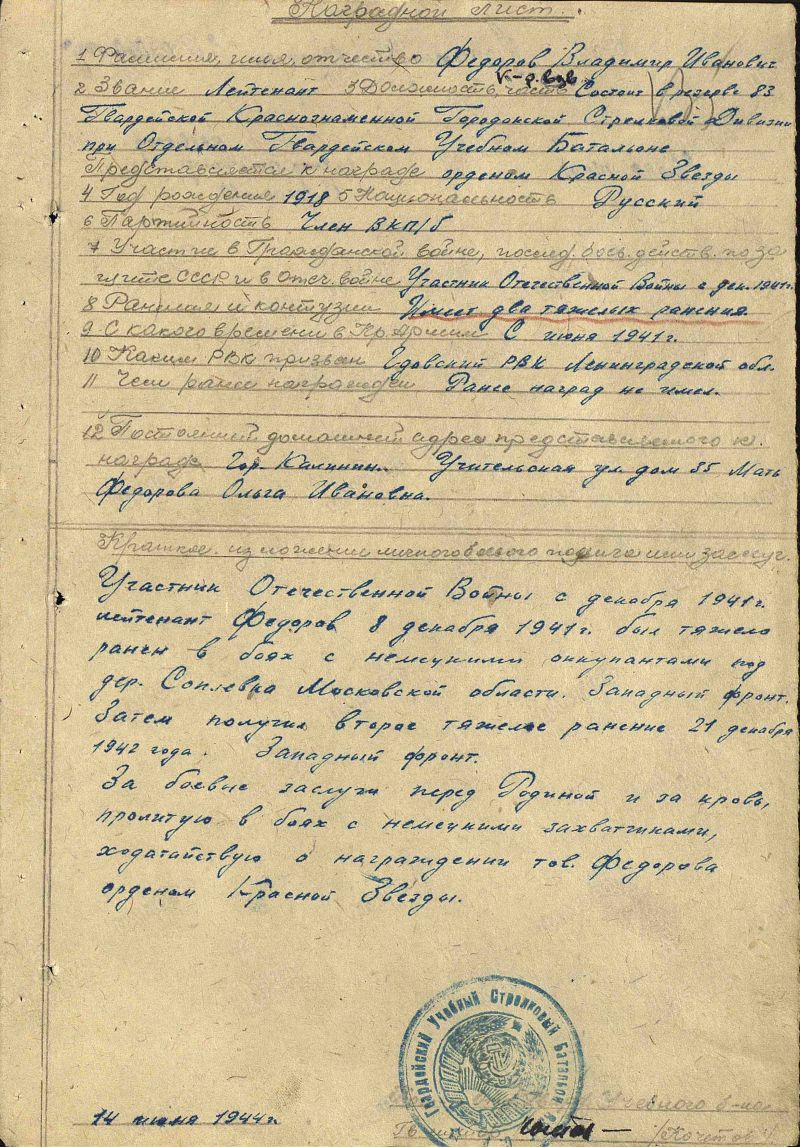 Наградной лист.
1 Фамилия, имя, отчество Федоров Владимир Иванович
к-р. взв.
2 Звание Лейтенант 3 Должность, часть Состоит в резерве 83
Гвардейской Краснознаменной Городокской Стрелковой Дивизии
при Отдельном Гвардейском Учебном Батальоне
Представляется к награде орденом Красной Звезды
4 Год рождения 1918 5 Национальность Русский
6 Партийность Член ВКП/б
7 Участие в Гражданской войне, послед. боев. действ. по за
щите СССР и в отеч. войне Участник Отечественной Войны с дек. 1941г.
8 Ранения и контузии Имеет два тяжелых ранения.
9 С какого времени в Кр. Армии С июня 1941г.
10 Каким РВК призван Гдовский РВК Ленинградской обл.
11 Чем ранее награжден Ранее наград не имел.
12 Постоянный домашний адрес представляемого к
награде Гор. Калинин. Учительская ул дом 55 Мать
Федорова Ольга Ивановна.
Краткое изложение личного боевого подвига или заслуг.
Участник Отечественной Войны с декабря 1941г.
лейтенант Федоров 8 декабря 1941г. был тяжело
ранен в боях с немецкими оккупантами под
дер. Сопаевка Московской области. Западный фронт.
Затем получил второе тяжелое ранение 21 декабря
1942 года. Западный фронт.
За боевые заслуги перед Родиной и за кровь,
пролитую в боях с немецкими захватчиками,
ходатайствую о награждении тов. Федорова
орденом Красной Звезды.
Гвардейский Учебный Стрелковый Батальон
Учебного б-на
14 июля 1944г.